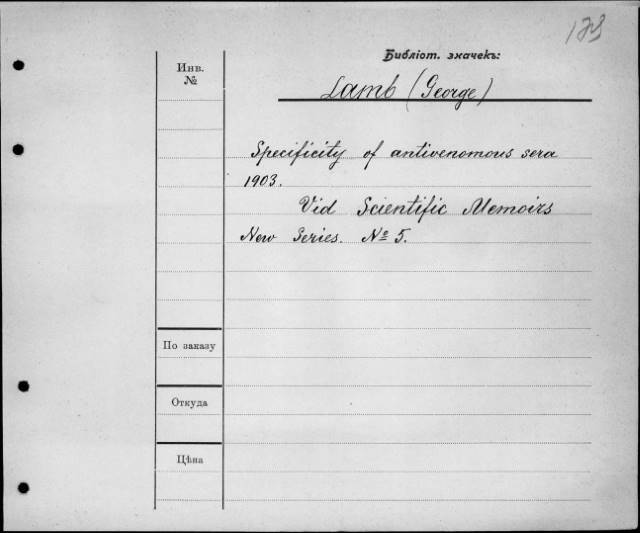 Библіот. значекъ:
Инв.
№
Lamb (George)
Specificity of antivenomous sera
1903.
Vid Scientific Memoirs
New Series. № 5.
По заказу
Откуда
Цѣна